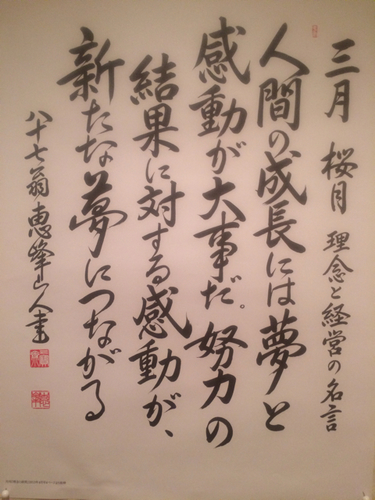 三月 桜月 理念と経営の名言
人間の成長には夢と
感動が大事だ。努力の
結果に対する感動が、
新たな夢につながる
八十七翁 恵峰山人書